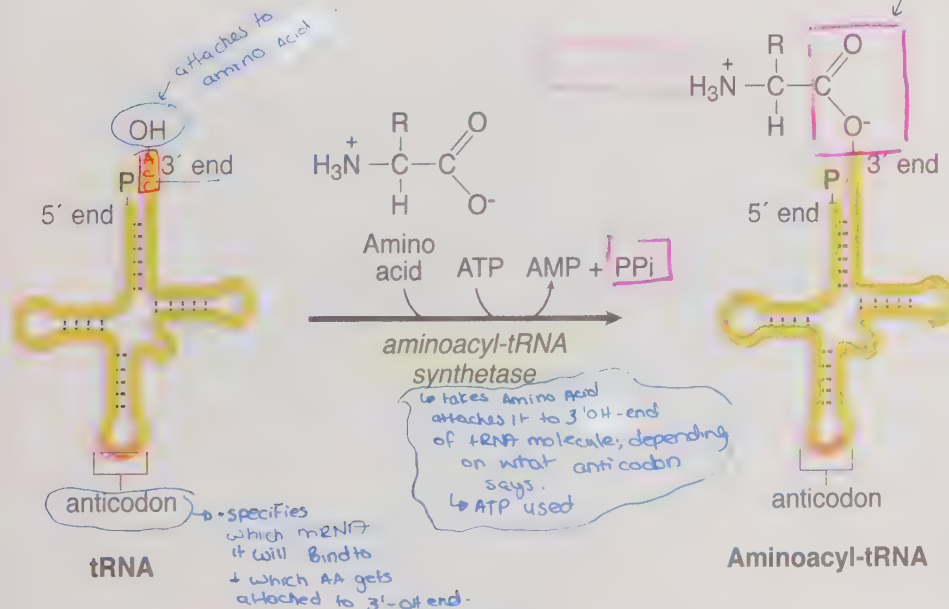 attaches to
amino acid
OH
A
C
C
3´ end
P
5´ end
anticodon
tRNA
• specifies
which mRNA
it will Bind to
+ which AA gets
attached to 3'-OH end.
H3N+
C
R
H
C
O
O-
Amino
acid
ATP
AMP + PPi
aminoacyl-tRNA
synthetase
↳ takes Amino Acid
attaches it to 3'OH-end
of tRNA molecule; depending
on what anticodon
says.
↳ ATP used
H3N+
C
R
H
C
O
O-
3´ end
P
5´ end
anticodon
Aminoacyl-tRNA